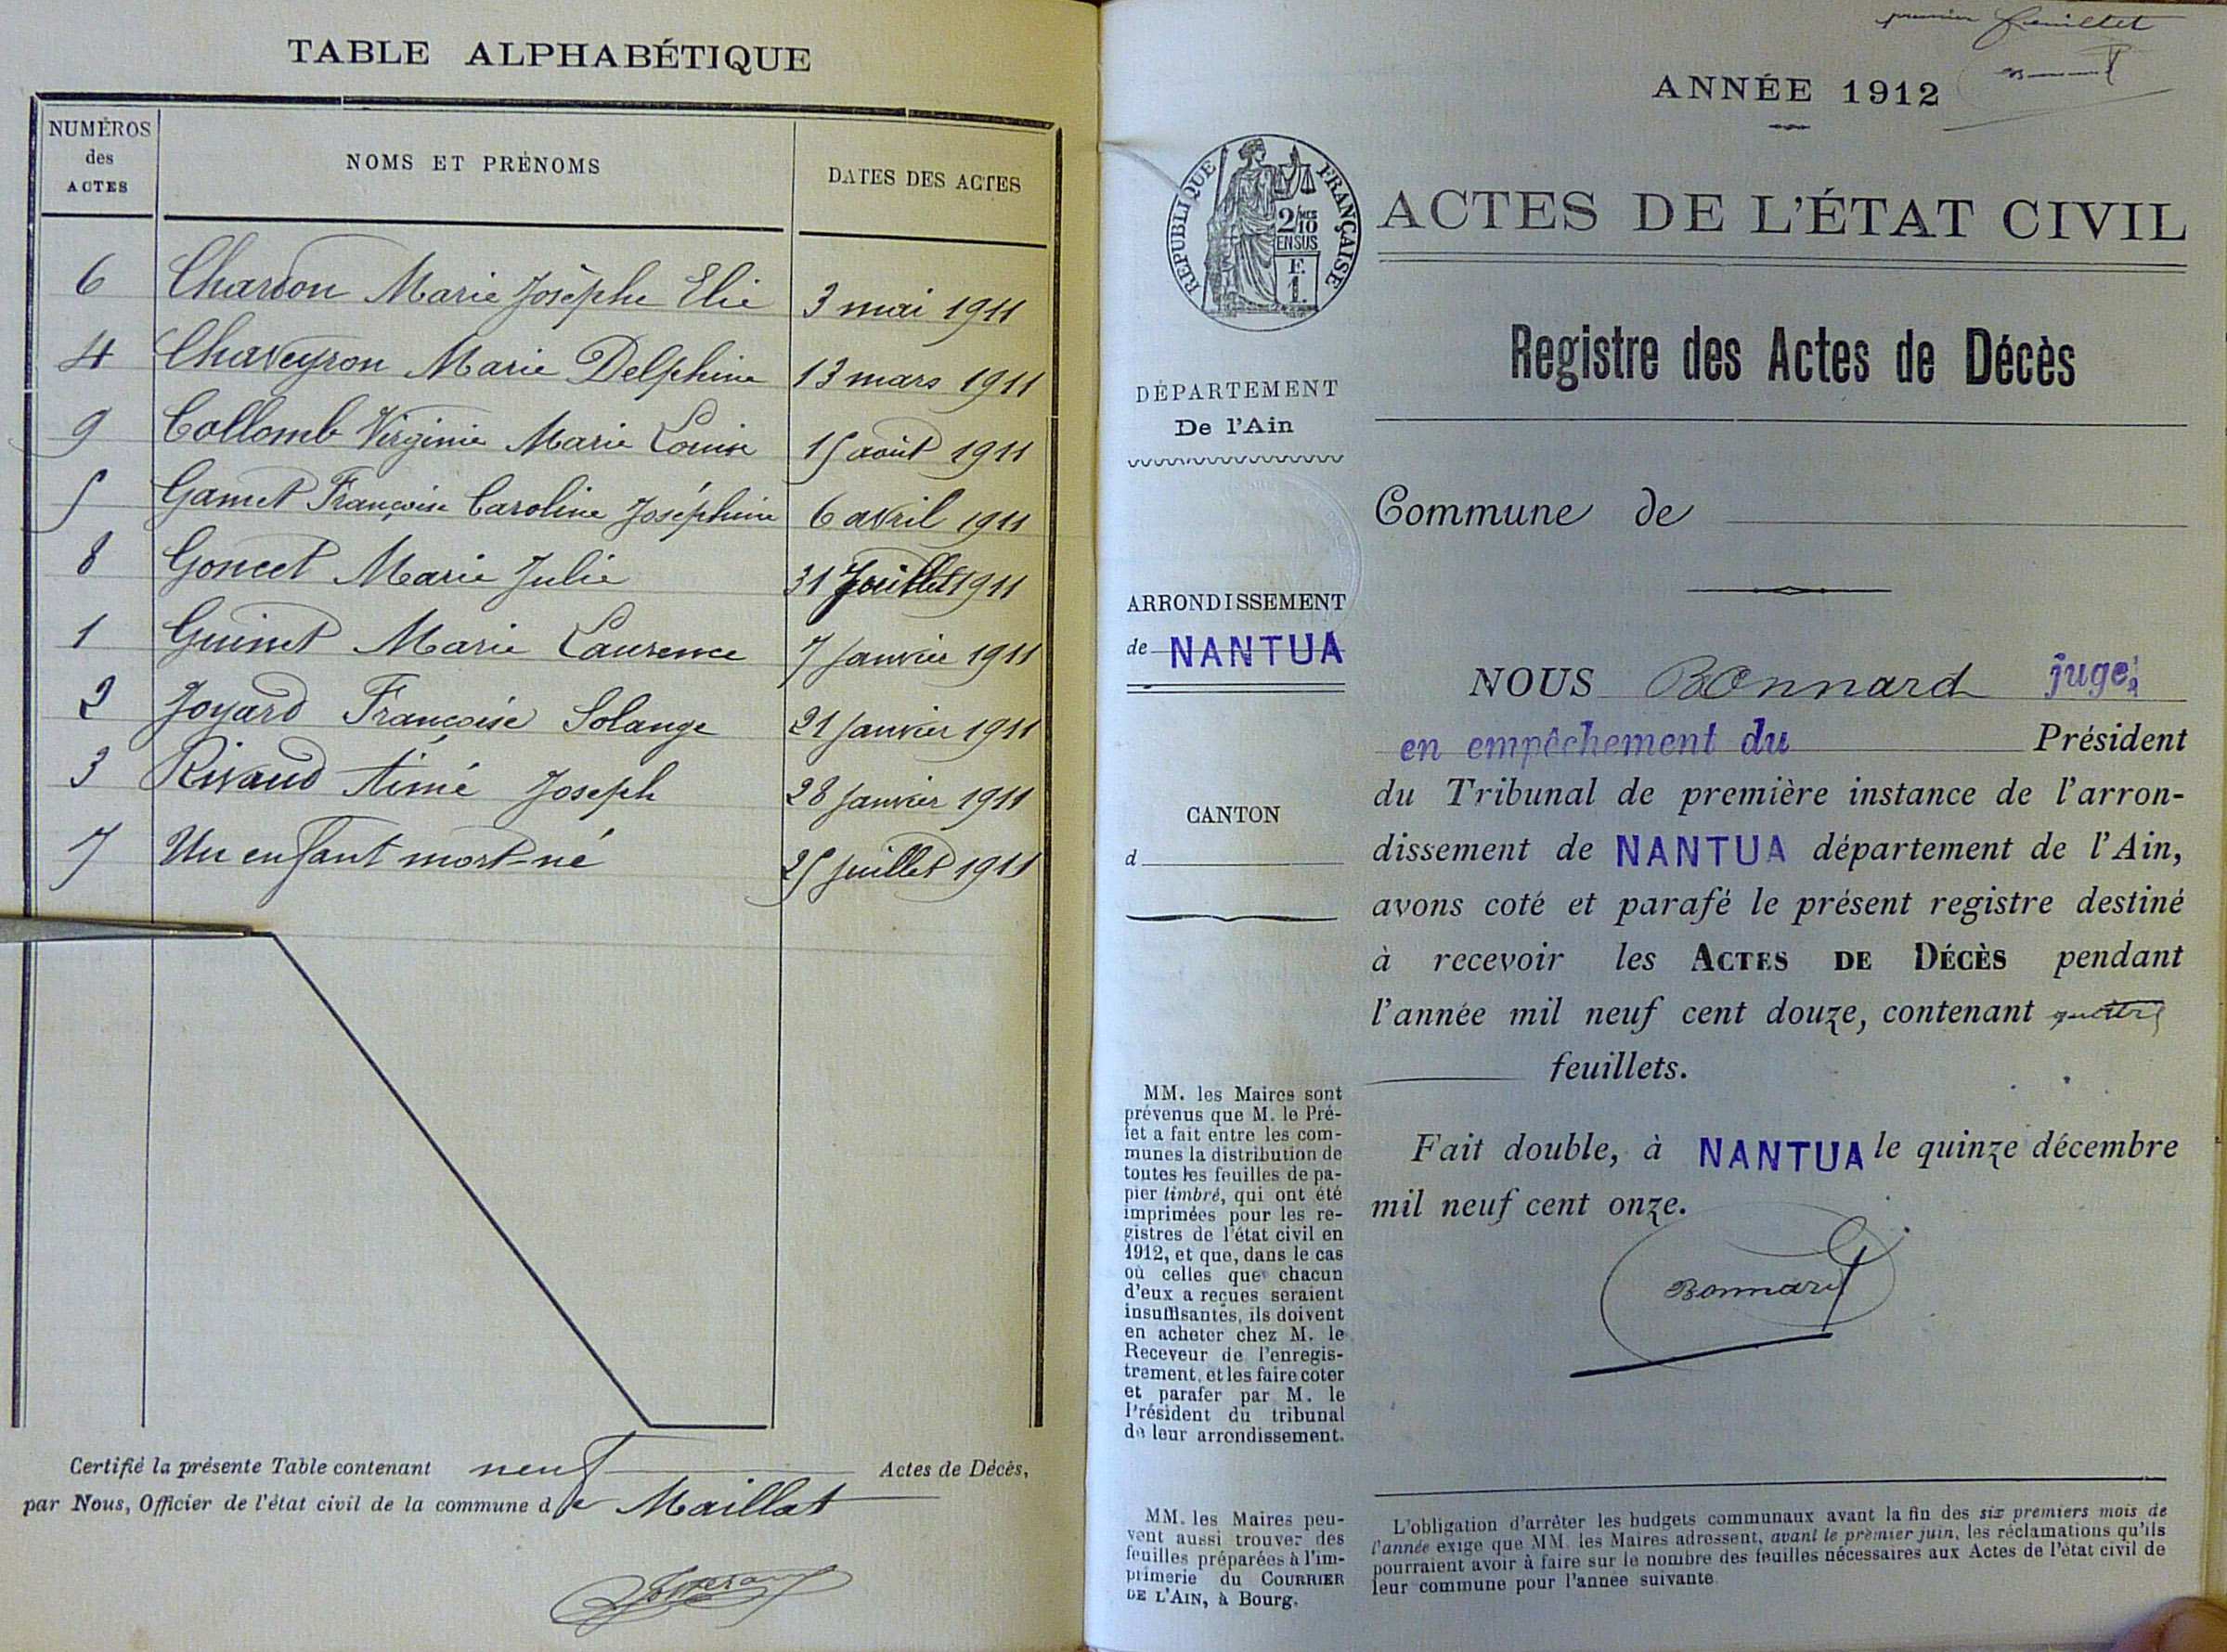 TABLE ALPHABÉTIQUE
NUMÉROS des ACTES NOMS ET PRÉNOMS DATES DES ACTES
6 Chardon Marie Josèphe Elie 3 mai 1911
4 Chaveyron Marie Delphine 13 mars 1911
9 Collomb Virginie Marie Louise 15 août 1911
5 Gamet Françoise Caroline Joséphine 6 avril 1911
8 Goncet Marie Julie 31 Juillet 1911
1 Guinet Marie Laurence 7 Janvier 1911
2 Joyard Françoise Solange 21 Janvier 1911
3 Rivaud Aimé Joseph 28 Janvier 1911
7 Un enfant mort-né 25 Juillet 1911
Certifié la présente Table contenant neuf Actes de Décès,
par Nous, Officier de l'état civil de la commune de Maillat
premier feuillet
ANNÉE 1912
RÉPUBLIQUE FRANÇAISE
2/10 MES
EN SUS
F.
1.
ACTES DE L'ÉTAT CIVIL
Registre des Actes de Décès
DÉPARTEMENT
De l'Ain
Commune de
ARRONDISSEMENT
de NANTUA
CANTON
d
NOUS Bonnard juge,
en empêchement du Président
du Tribunal de première instance de l'arron-
dissement de NANTUA département de l'Ain,
avons coté et parafé le présent registre destiné
à recevoir les ACTES DE DÉCÈS pendant
l'année mil neuf cent douze, contenant quatre
feuillets.
Fait double, à NANTUA le quinze décembre
mil neuf cent onze.
Bonnard
MM. les Maires sont
prévenus que M. le Pré-
fet a fait entre les com-
munes la distribution de
toutes les feuilles de pa-
pier timbré, qui ont été
imprimées pour les re-
gistres de l'état civil en
1912, et que, dans le cas
où celles que chacun
d'eux a reçues seraient
insuffisantes, ils doivent
en acheter chez M. le
Receveur de l'enregis-
trement, et les faire coter
et parafer par M. le
Président du tribunal
de leur arrondissement.
MM. les Maires peu-
vent aussi trouver des
feuilles préparées à l'im-
primerie du COURRIER
DE L'AIN, à Bourg.
L'obligation d'arrêter les budgets communaux avant la fin des six premiers mois de
l'année exige que MM. les Maires adressent, avant le premier juin, les réclamations qu'ils
pourraient avoir à faire sur le nombre des feuilles nécessaires aux Actes de l'état civil de
leur commune pour l'année suivante.